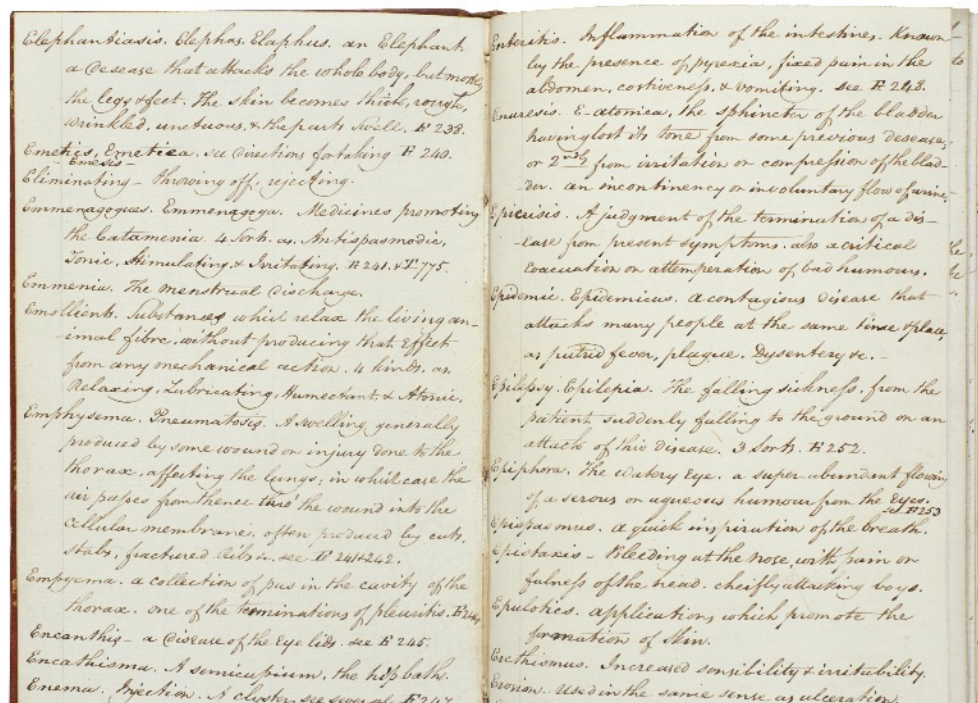 Elephantiasis. Elephas. Elaphus. an Elephant.
a Desease that attacks the whole body, but mostly
the legs & feet. The skin becomes thick, rough,
wrinkled, unctuous, & the parts swell. F 238.
Emetics, Emetica. see directions for taking F 240.
Emesis
Eliminating – throwing off, rejecting.
Emmenagogues. Emmenagoga. Medicines promoting
the Catamenia. 4 sorts. as. Antispasmodic,
Tonic, Stimulating, & Irritating. F 241. & F 775.
Emmenia. The menstrual discharge.
Emollients. Substances which relax the living an-
imal fibre, without producing that effect
from any mechanical action. 4 kinds. as
Relaxing, Lubricating, Humectant. & Atonic.
Emphysema. Pneumatosis. A swelling generally
produced by some wound or injury done to the
thorax, affecting the lungs; in which case the
air passes from thence thro' the wound into the
cellular membrane. often produced by cuts,
stabs, fractured ribs &c. see F 241 & 242.
Empyema. a collection of pus in the cavity of the
thorax. one of the terminations of pleuritis. F 244
Encanthis – a Disease of the Eye lids. see F 245.
Encathisma. A semicupium, the hip bath.
Enema. Injection. A clyster see several F 247
Enteritis. Inflammation of the intestines. Known
by the presence of pyrexia, fixed pain in the
abdomen, costiveness, & vomiting. see F 248.
Enuresis. E-atonica, the sphincter of the bladder
having lost its tone from some previous desease,
or 2ndly from irritation or compression of the blad-
der. an incontinency or involuntary flow of urine.
Epicrisis. A judgment of the termination of a dis-
-ease from present symptoms. also a critical
evacuation or attemperation of bad humours.
Epidemic. Epidemicus. a contagious disease that
attacks many people at the same time & place,
as putrid fever, plague, Dysentery &c. –
Epilepsy. Epilepia. The falling sickness, from the
patient suddenly falling to the ground on an
attack of this disease. 3 sorts. F 252.
Epiphora. The watery Eye. a super abundant flowing
of a serous or aqueous humour from the Eyes.
see F 253
Epispasmus. a quick inspiration of the breath.
Epistaxis – Bleeding at the nose, with pain or
fulness of the head. cheifly attacking boys.
Epulotics. applications which promote the
formation of skin.
Erethismus. Increased sensibility & irritability.
Erosion. Used in the same sense as ulceration.